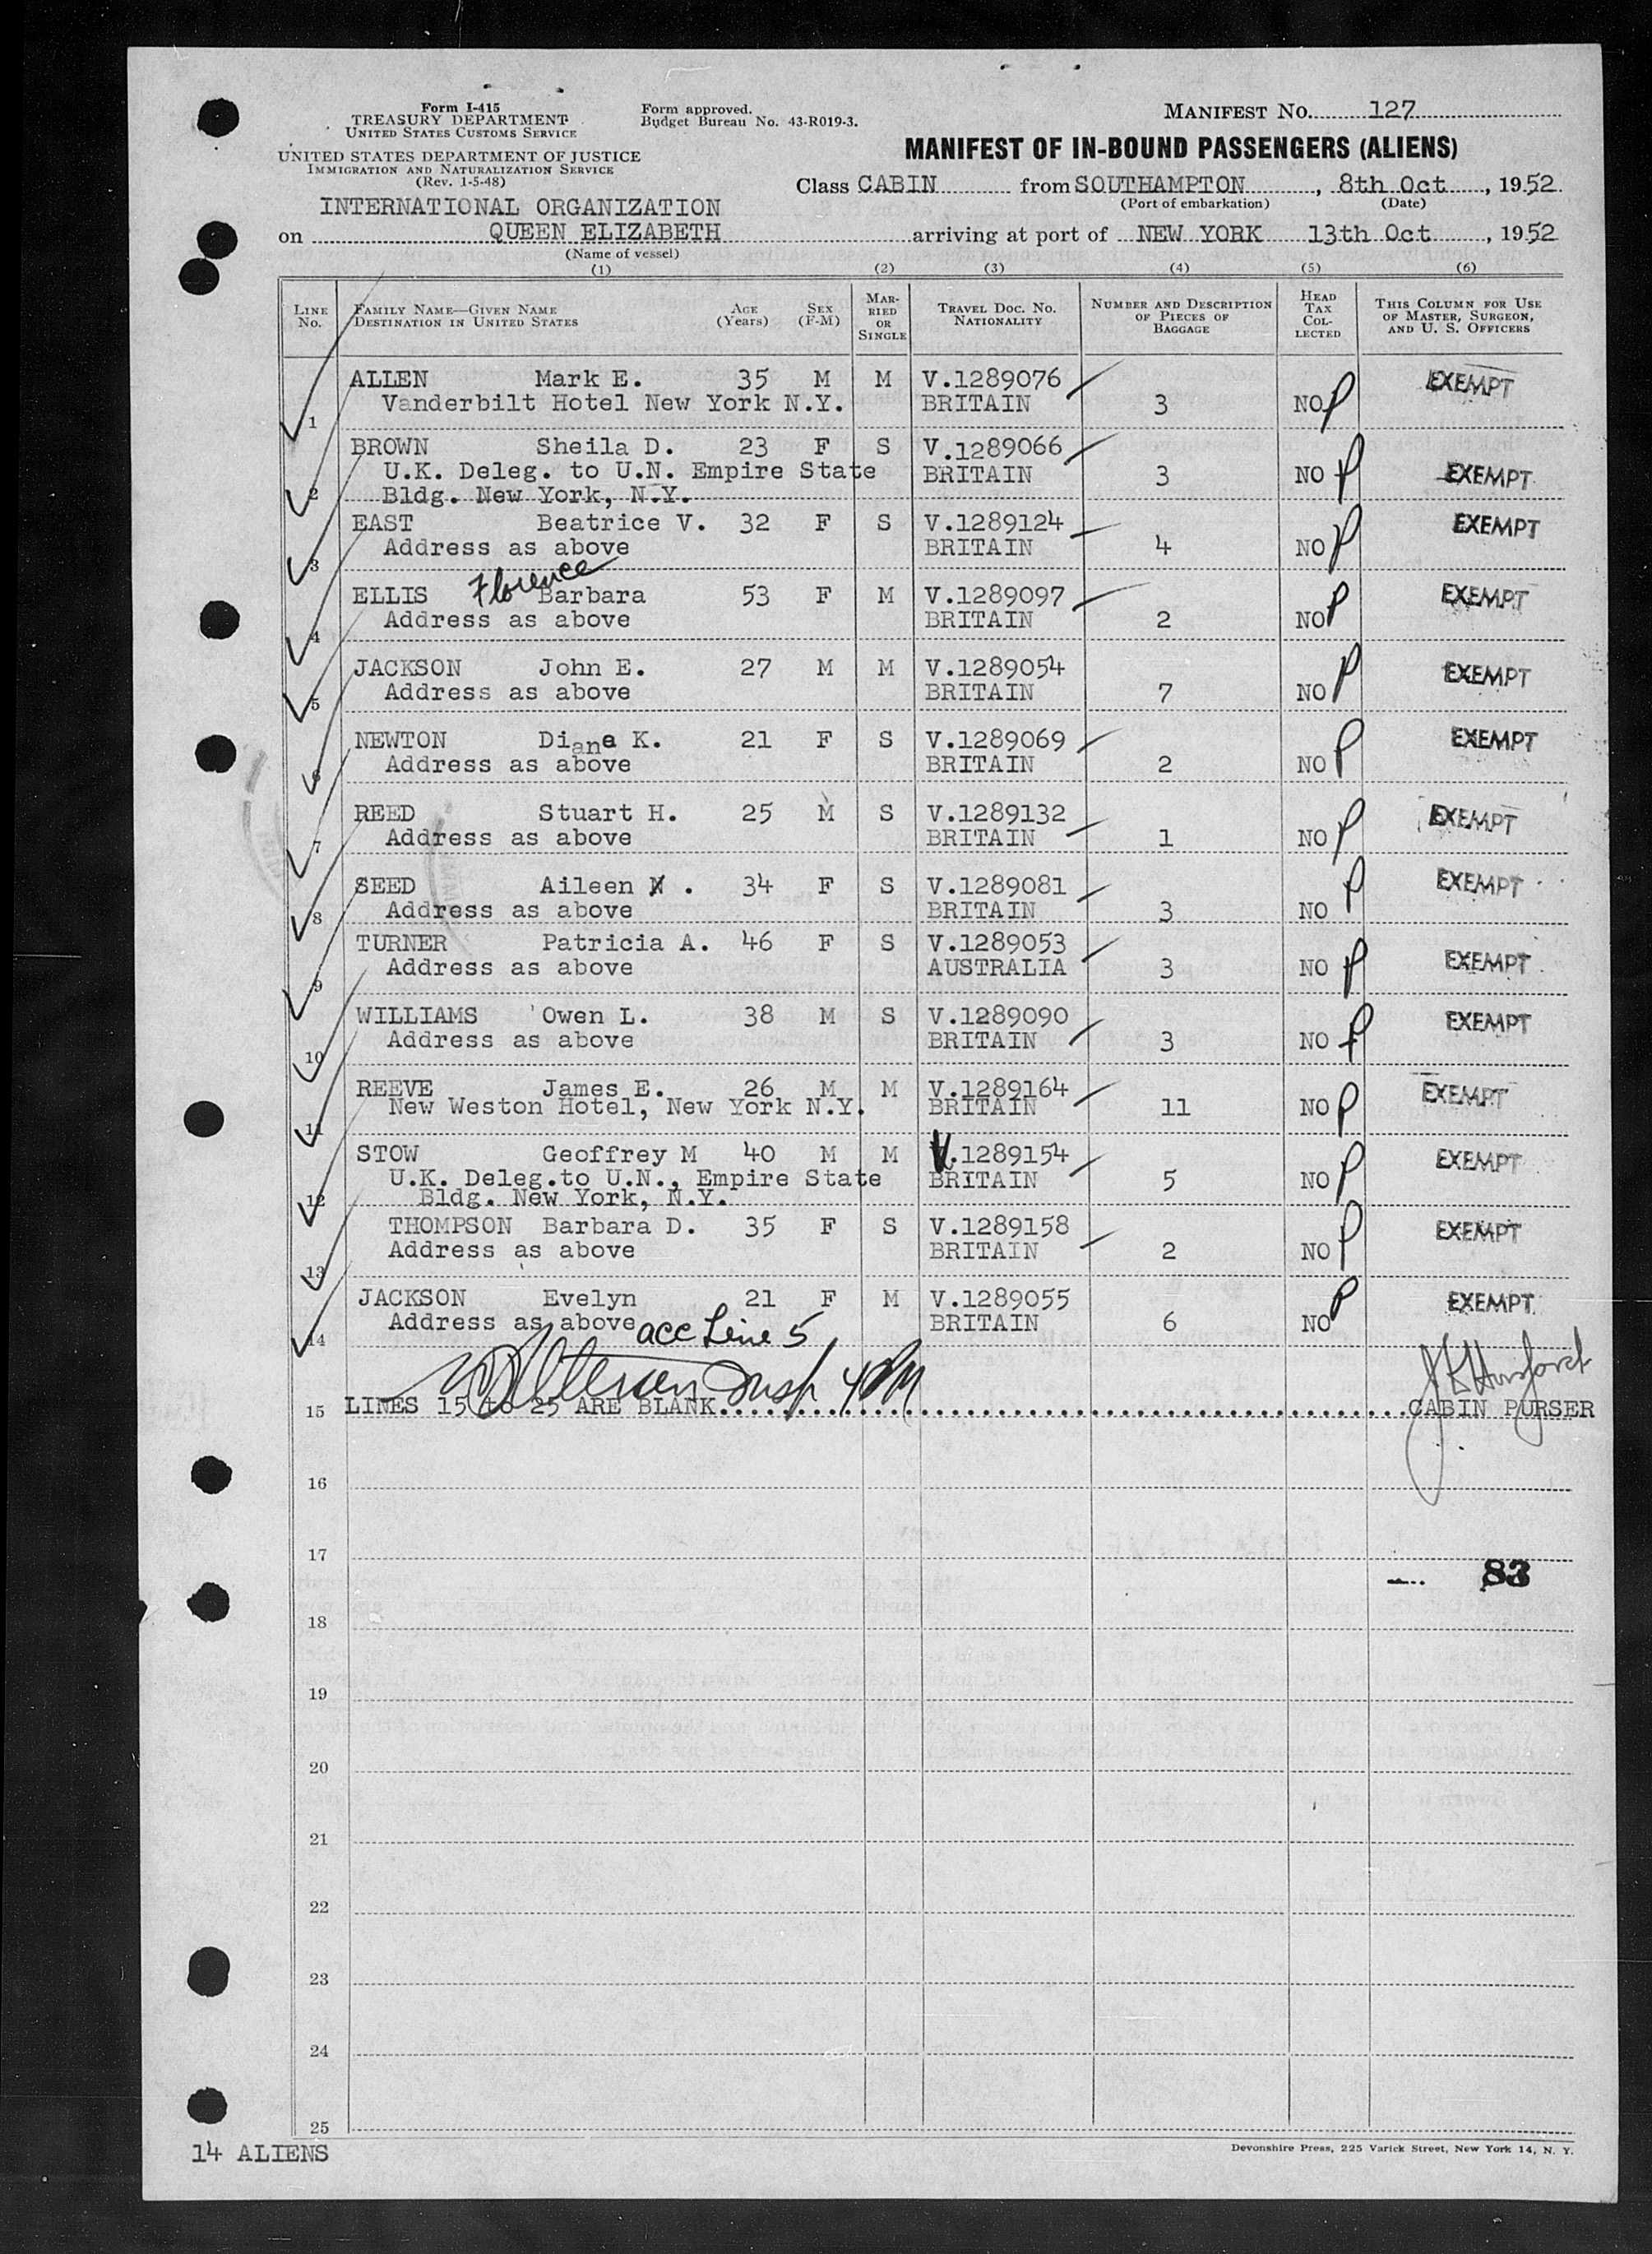 Form I-415
TREASURY DEPARTMENT
UNITED STATES CUSTOMS SERVICE
UNITED STATES DEPARTMENT OF JUSTICE
IMMIGRATION AND NATURALIZATION SERVICE
(Rev. 1-5-48)
Form approved.
Budget Bureau No. 43-R019-3.
MANIFEST No. 127
MANIFEST OF IN-BOUND PASSENGERS (ALIENS)
Class CABIN from SOUTHAMPTON, 8th Oct, 1952
(Port of embarkation) (Date)
INTERNATIONAL ORGANIZATION
on QUEEN ELIZABETH arriving at port of NEW YORK 13th Oct, 1952
(Name of vessel)
(1) (2) (3) (4) (5) (6)
LINE No. FAMILY NAME—GIVEN NAME DESTINATION IN UNITED STATES AGE (Years) SEX (F-M) MARRIED OR SINGLE TRAVEL DOC. NO. NATIONALITY NUMBER AND DESCRIPTION OF PIECES OF BAGGAGE HEAD TAX COLLECTED THIS COLUMN FOR USE OF MASTER, SURGEON, AND U. S. OFFICERS
ALLEN Mark E. 35 M M V.1289076 EXEMPT
1 Vanderbilt Hotel New York N.Y. BRITAIN 3 NO P
BROWN Sheila D. 23 F S V.1289066
U.K. Deleg. to U.N. Empire State BRITAIN 3 NO P EXEMPT
2 Bldg. New York, N.Y.
EAST Beatrice V. 32 F S V.1289124 EXEMPT
3 Address as above BRITAIN 4 NO P
Florence
ELLIS Barbara 53 F M V.1289097 EXEMPT
4 Address as above BRITAIN 2 NO P
JACKSON John E. 27 M M V.1289054 EXEMPT
5 Address as above BRITAIN 7 NO P
NEWTON Diane K. 21 F S V.1289069 EXEMPT
6 Address as above BRITAIN 2 NO P
REED Stuart H. 25 M S V.1289132 EXEMPT
7 Address as above BRITAIN 1 NO P
SEED Aileen . 34 F S V.1289081 EXEMPT
8 Address as above BRITAIN 3 NO P
TURNER Patricia A. 46 F S V.1289053
9 Address as above AUSTRALIA 3 NO P EXEMPT
WILLIAMS Owen L. 38 M S V.1289090 EXEMPT
10 Address as above BRITAIN 3 NO P
REEVE James E. 26 M M V.1289164 EXEMPT
11 New Weston Hotel, New York N.Y. BRITAIN 11 NO P
STOW Geoffrey M 40 M M V.1289154 EXEMPT
U.K. Deleg.to U.N., Empire State BRITAIN 5 NO P
12 Bldg. New York, N.Y.
THOMPSON Barbara D. 35 F S V.1289158 EXEMPT
13 Address as above BRITAIN 2 NO P
JACKSON Evelyn 21 F M V.1289055 EXEMPT
14 Address as above acc Line 5 BRITAIN 6 NO P
Insp
15 LINES 15 to 25 ARE BLANK CABIN PURSER
16
17
83
18
19
20
21
22
23
24
25
14 ALIENS
Devonshire Press, 225 Varick Street, New York 14, N. Y.